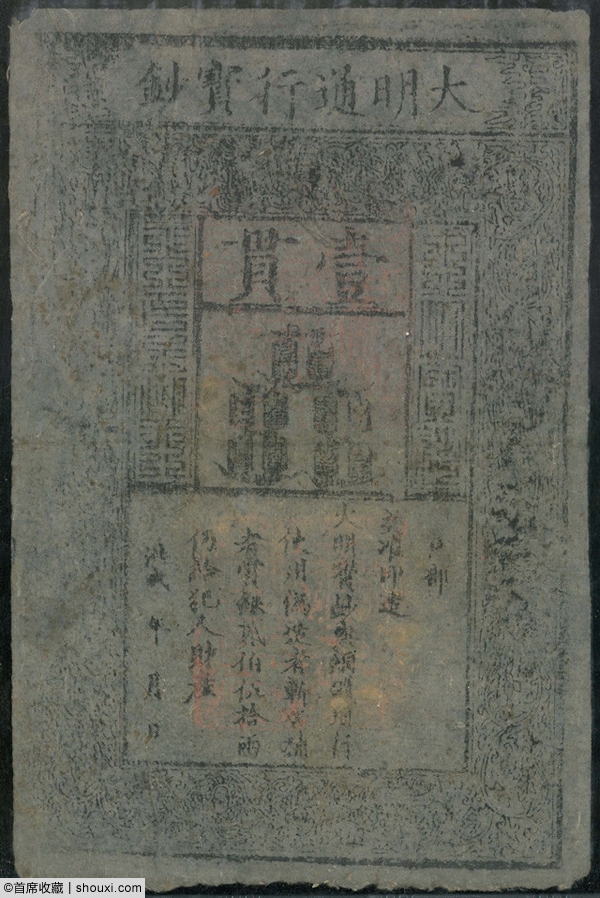 大明通行寶鈔
壹貫
戶部
奏准印造
大明寶鈔與銅錢通行
使用偽造者斬告捕
者賞銀貳伯伍拾兩
仍給犯人財產
洪武 年 月 日
©首席收藏 | shouxi.com